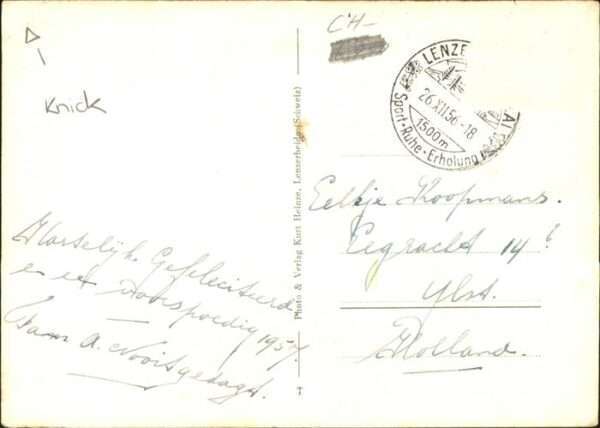 CH-
Knick
LENZE
26.XII.56-18
1500m
Sport-Ruhe-Erholung
Photo & Verlag Kurt Heinze, Lenzerheide (Schweiz)
7
Hartelijk Gefeliciteerd
en een voorspoedig 1957.
Fam A. Nooitgedagt.
Eeltje Koopmans.
Eegracht 14 b
Ylst.
Holland.